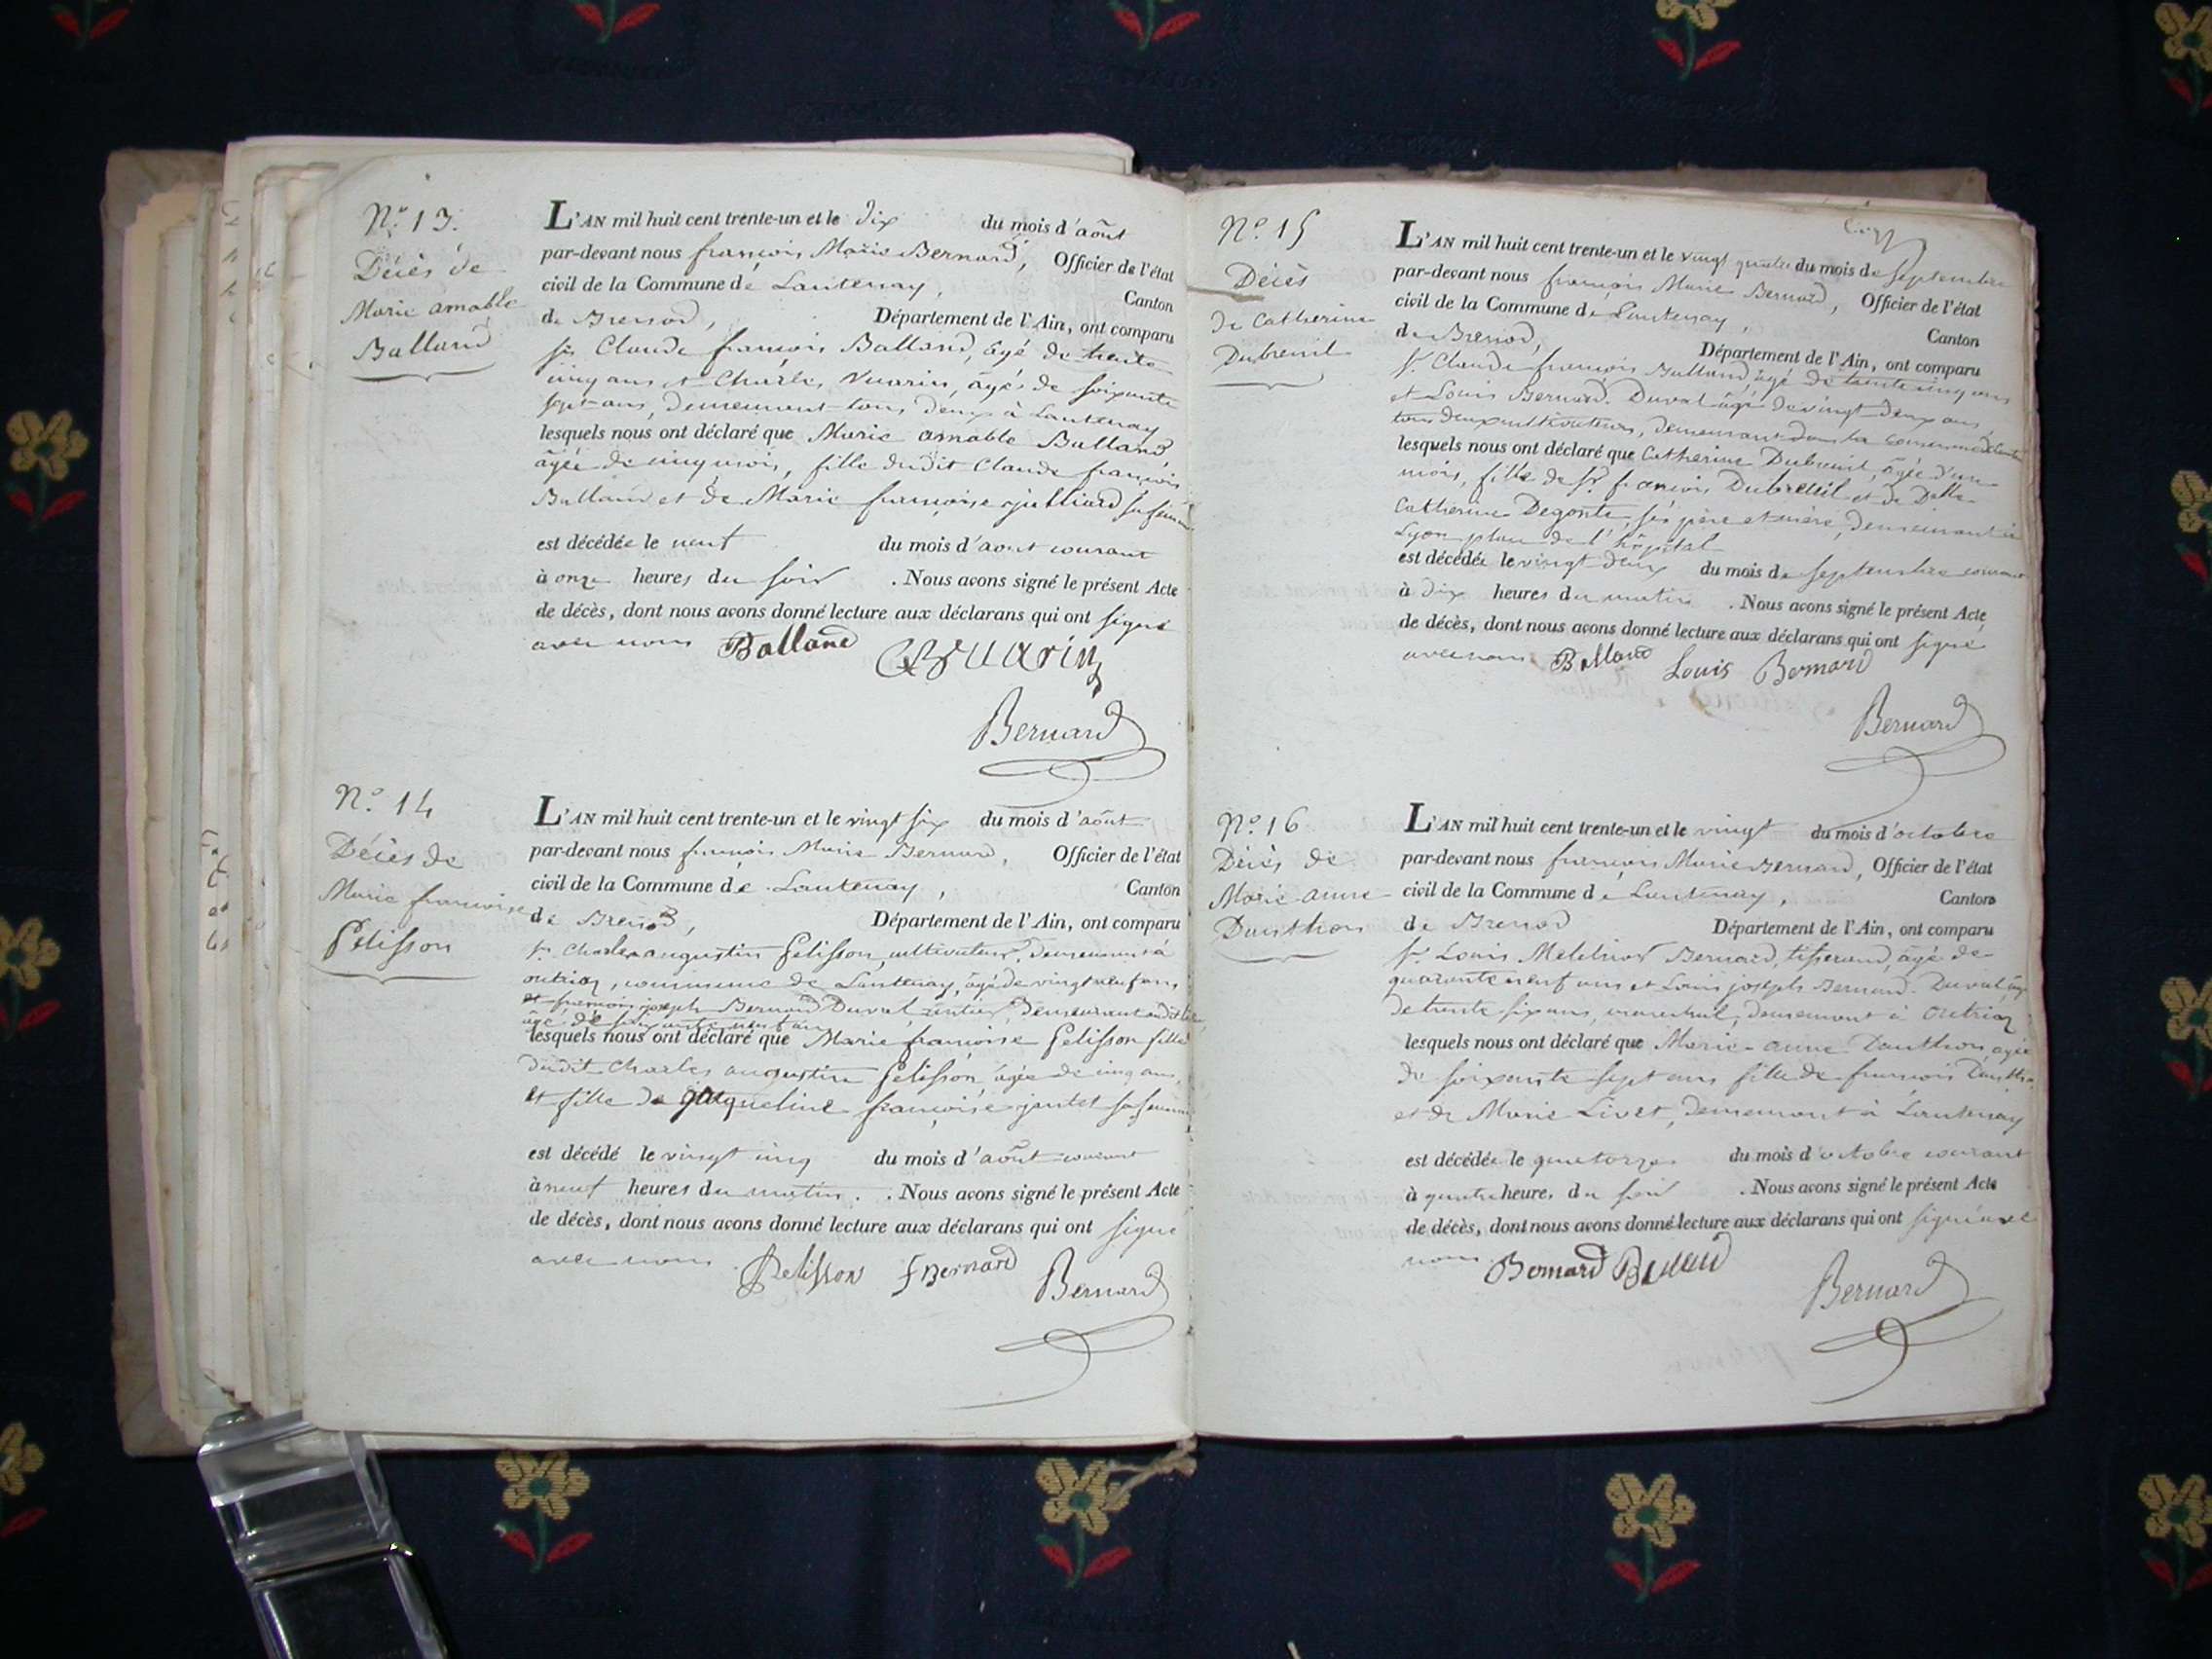 N.° 13.
Décès de
Marie amable
Balland
L'AN mil huit cent trente-un et le dix du mois d'août
par-devant nous françois Marie Bernard, Officier de l'état
civil de la Commune de Lantenay, Canton
de Brenod, Département de l'Ain, ont comparu
sr. Claude françois Balland, âgé de trente
cinq ans et Charles Vuarin, âgé de soixante
sept ans, demeurant tous deux à Lantenay
lesquels nous ont déclaré que Marie amable Balland
âgée de cinq mois, fille dudit Claude françois
Balland et de Marie françoise julliard sa femme
est décédée le neuf du mois d'aout courant
à onze heures du soir . Nous avons signé le présent Acte
de décès, dont nous avons donné lecture aux déclarans qui ont signé
avec nous Balland Vuarin
Bernard
N.° 14
Décès de
Marie françoise
Pelisson
L'AN mil huit cent trente-un et le vingt six du mois d'août
par-devant nous françois Marie Bernard, Officier de l'état
civil de la Commune de Lantenay, Canton
de Brenod, Département de l'Ain, ont comparu
sr. Charles augustin Pelisson, cultivateur, demeurant à
outriaz, commune de Lantenay, âgé de vingt neuf ans
et françois joseph Bernard Duval rentier, demeurant audit lieu,
âgé de soixante neuf ans
lesquels nous ont déclaré que Marie françoise Pelisson fille
dudit Charles augustin Pelisson, âgée de cinq ans,
et fille de jacqueline françoise jantet sa femme
est décédé le vingt cinq du mois d'août courant
à neuf heures du matin. . Nous avons signé le présent Acte
de décès, dont nous avons donné lecture aux déclarans qui ont signé
avec nous. Pelisson f Bernard Bernard
N.° 15
Décès
de Catherine
Dubreuil
L'AN mil huit cent trente-un et le vingt quatre du mois de septembre
par-devant nous françois Marie Bernard, Officier de l'état
civil de la Commune de Lantenay, Canton
de Brenod, Département de l'Ain, ont comparu
sr. Claude françois Balland, âgé de trente cinq ans
et Louis Bernard-Duval âgé de vingt deux ans,
tous deux cultivateurs, demeurant dans la commune de Lantenay
lesquels nous ont déclaré que Catherine Dubreuil, âgée d'un
mois, fille de sr. françois Dubreuil et de Delle
Catherine Degonte, ses père et mère, demeurant à
Lyon place de l'hôpital
est décédée le vingt deux du mois de septembre courant
à dix heures du matin . Nous avons signé le présent Acte
de décès, dont nous avons donné lecture aux déclarans qui ont signé
avec nous Balland Louis Bernard
Bernard
N.° 16
Décès de
Marie anne
Danthon
L'AN mil huit cent trente-un et le vingt du mois d'octobre
par-devant nous françois Marie Bernard, Officier de l'état
civil de la Commune de Lantenay, Canton
de Brenod Département de l'Ain, ont comparu
sr. Louis Melchior Bernard, tisserand, âgé de
quarante neuf ans et Louis joseph Bernard-Duval âgé
de trente six ans, marechal, demeurant à Outriaz
lesquels nous ont déclaré que Marie-anne Danthon, agée
de soixante sept ans fille de françois Danthon
et de Marie Livet, demeurant à Lantenay
est décédée le quatorze du mois d'octobre courant
à quatre heures du soir . Nous avons signé le présent Acte
de décès, dont nous avons donné lecture aux déclarans qui ont signé avec
nous. Bernard Bernard Bernard